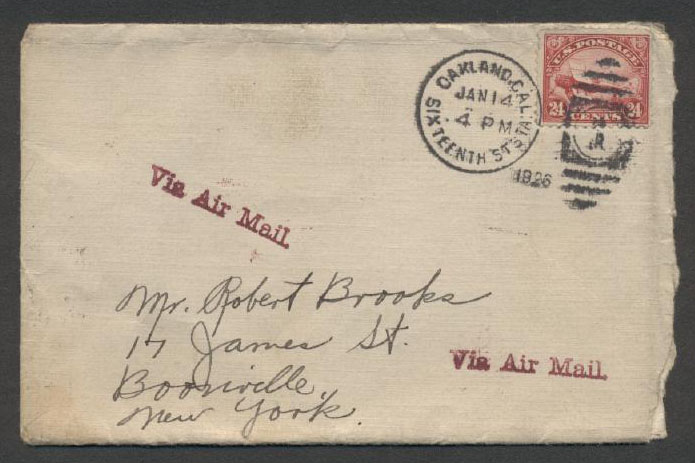 U.S. POSTAGE
24 CENTS 24
OAKLAND, CAL.
JAN 14
4 PM
SIXTEENTH ST. STA.
1926
Via Air Mail.
Mr. Robert Brooks
17 James St.
Boonville,
New York.
Via Air Mail.